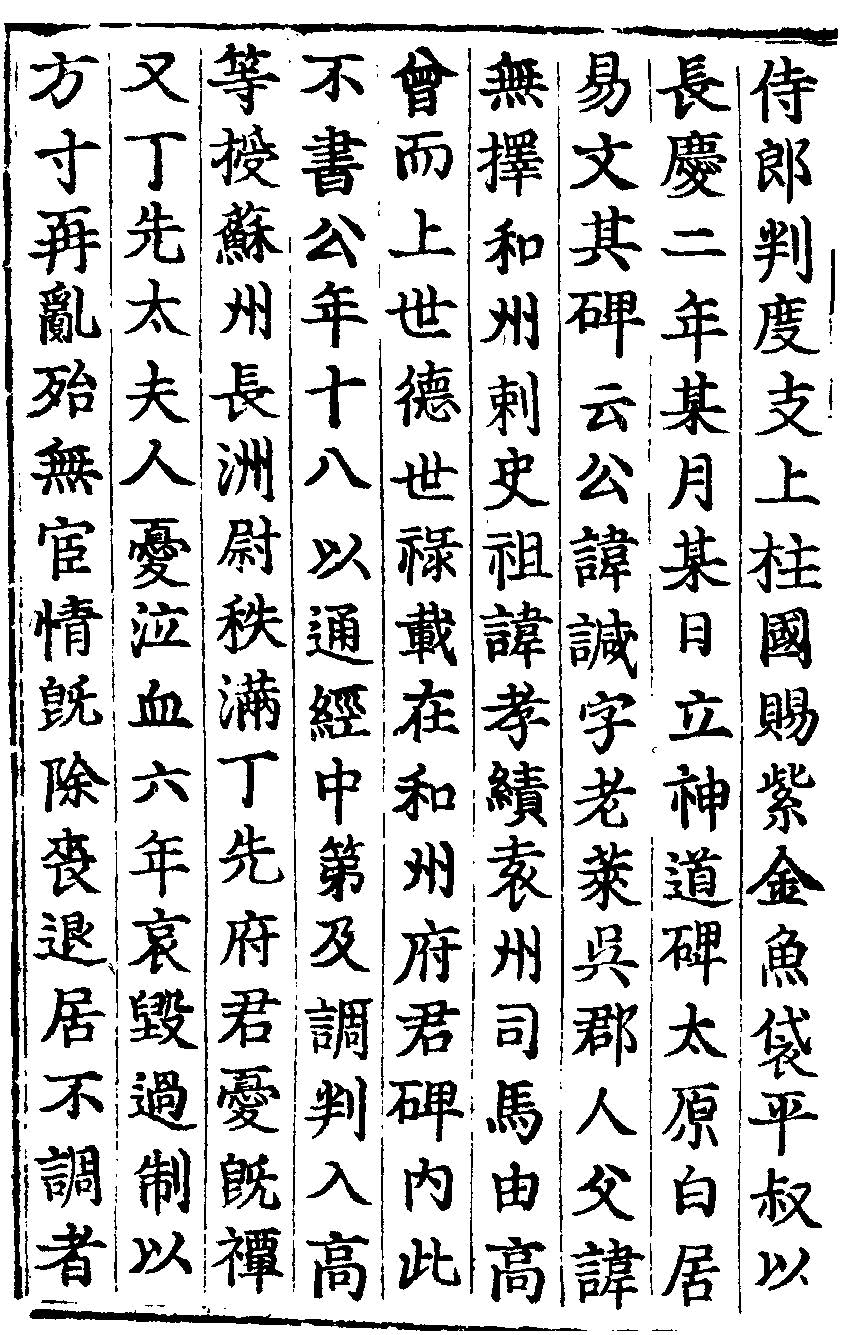 侍郎判度支上柱國賜紫金魚袋平叔以
長慶二年某月某日立神道碑太原白居
易文其碑云公諱諴字老萊吳郡人父諱
無擇和州剌史祖諱孝績袁州司馬由高
曾而上世德世祿載在和州府君碑内此
不書公年十八以通經中第及調判入高
等授蘇州長洲尉秩滿丁先府君憂旣禫
又丁先太夫人憂泣血六年哀毀過制以
方寸再亂殆無宦情旣除喪退居不調者